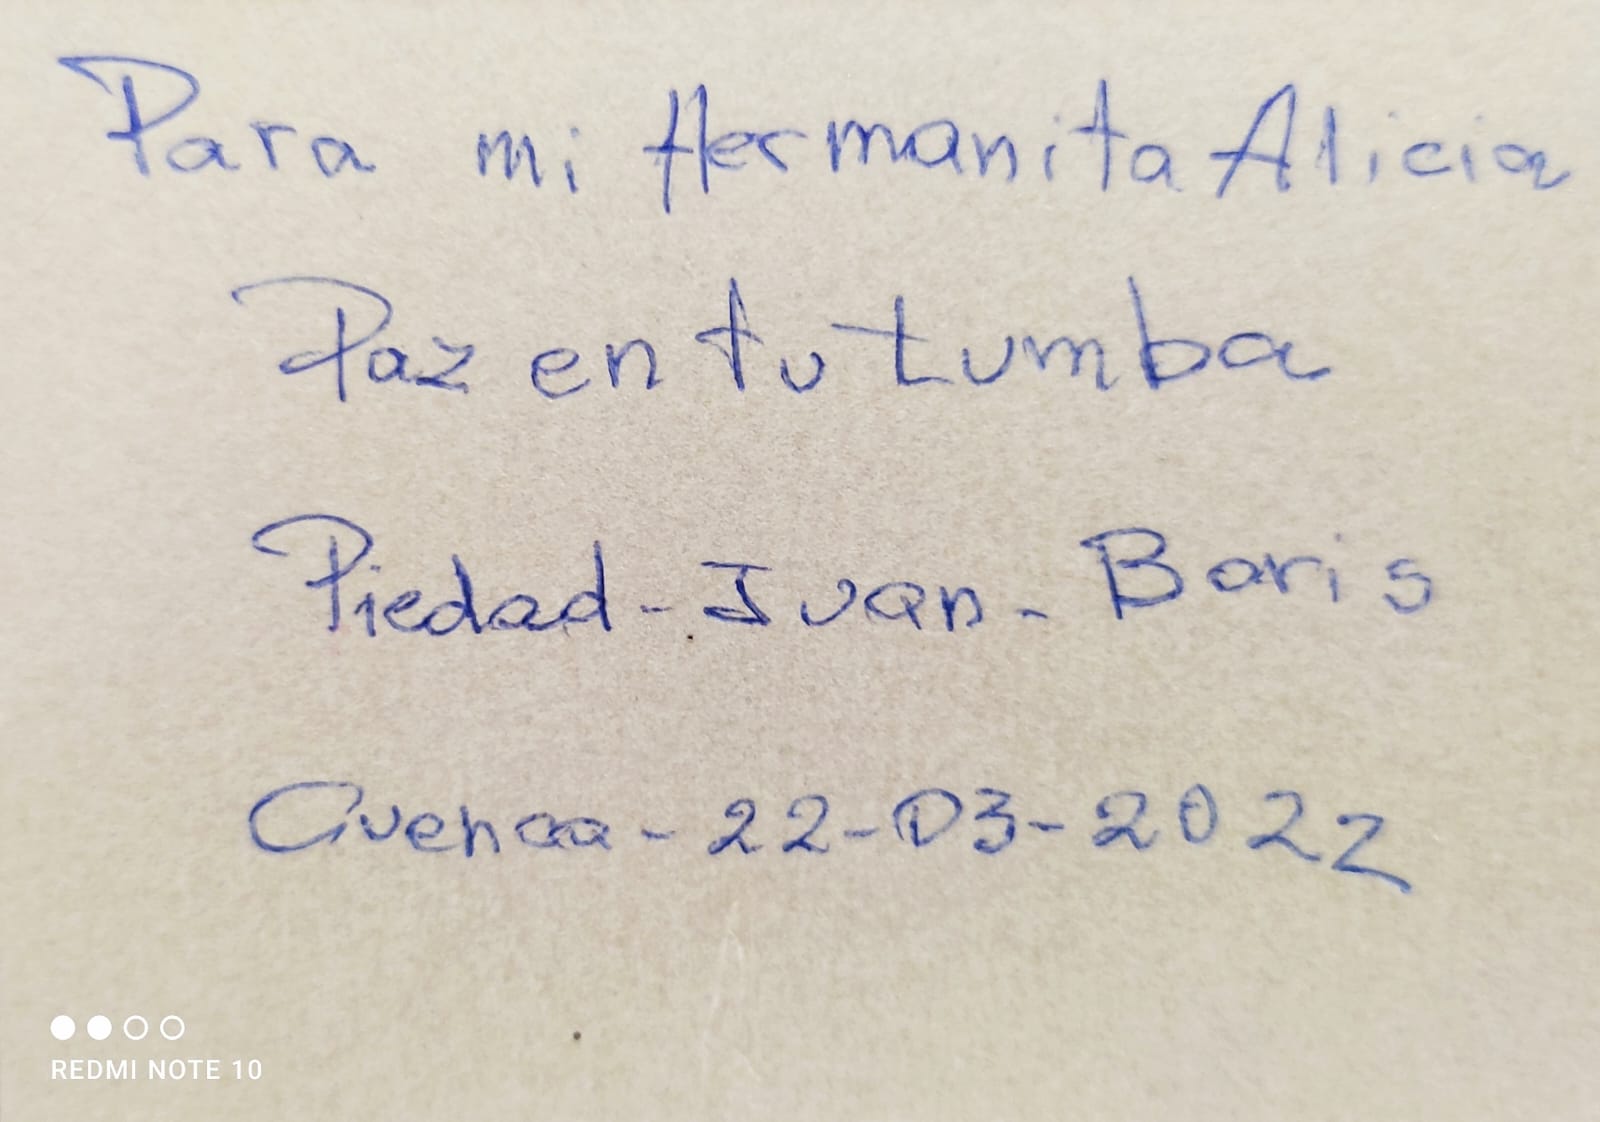 Para mi Hermanita Alicia
Paz en tu tumba
Piedad - Juan - Boris
Cuenca - 22 - 03 - 2022
REDMI NOTE 10